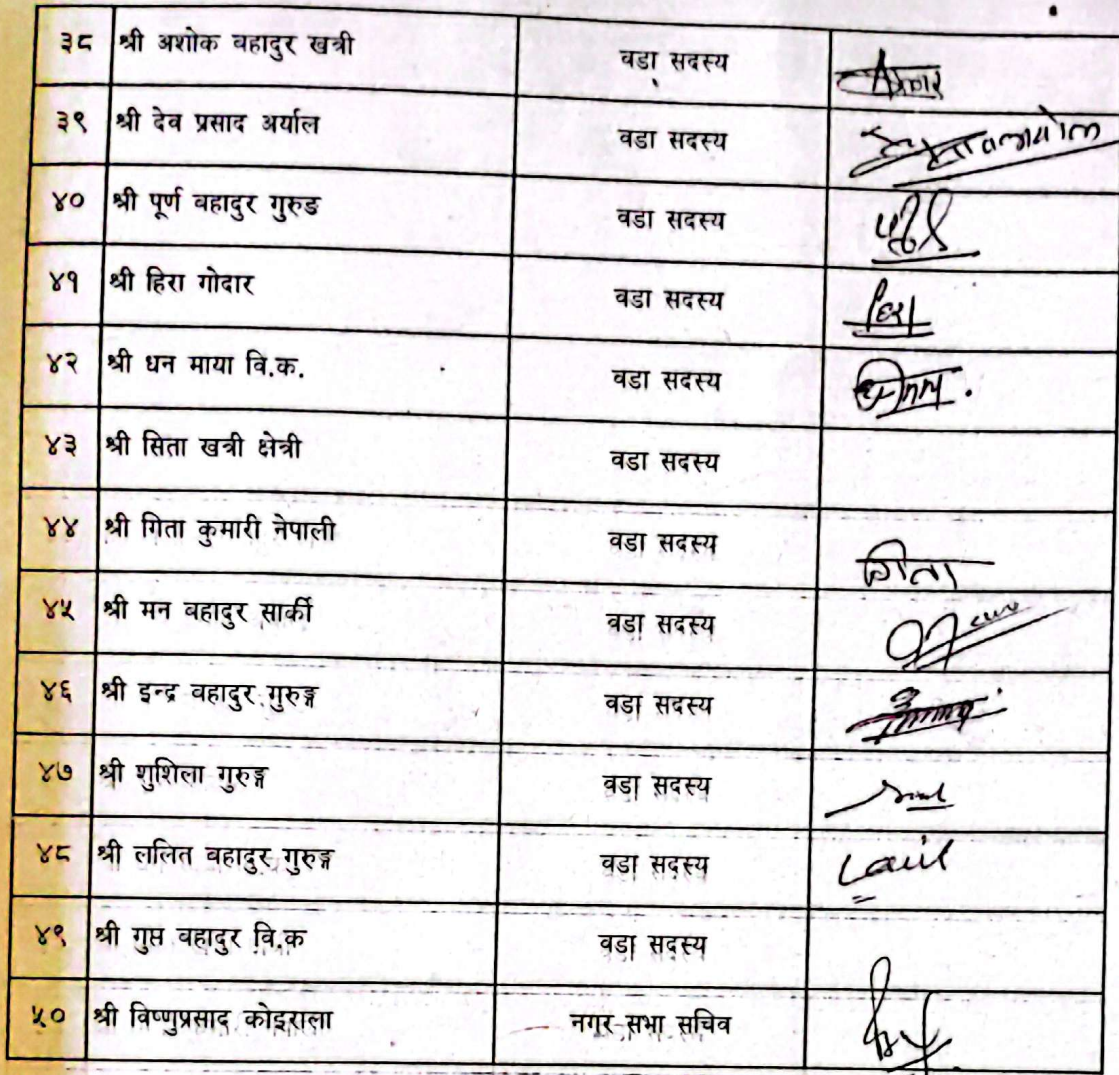 ३८ श्री अशोक वहादुर खत्री वडा सदस्य
३९ श्री देव प्रसाद अर्याल वडा सदस्य
४० श्री पूर्ण वहादुर गुरुड वडा सदस्य
४१ श्री हिरा गोदार वडा सदस्य
४२ श्री धन माया वि.क. वडा सदस्य
४३ श्री सिता खत्री क्षेत्री वडा सदस्य
४४ श्री गिता कुमारी नेपाली वडा सदस्य गिता
४५ श्री मन वहादुर सार्की वडा सदस्य
४६ श्री इन्द्र वहादुर गुरुङ्ग वडा सदस्य
४७ श्री शुशिला गुरुङ्ग वडा सदस्य
४८ श्री ललित वहादुर गुरुङ्ग वडा सदस्य
४९ श्री गुप्त वहादुर वि.क वडा सदस्य
५० श्री विष्णुप्रसाद कोइराला नगर सभा सचिव